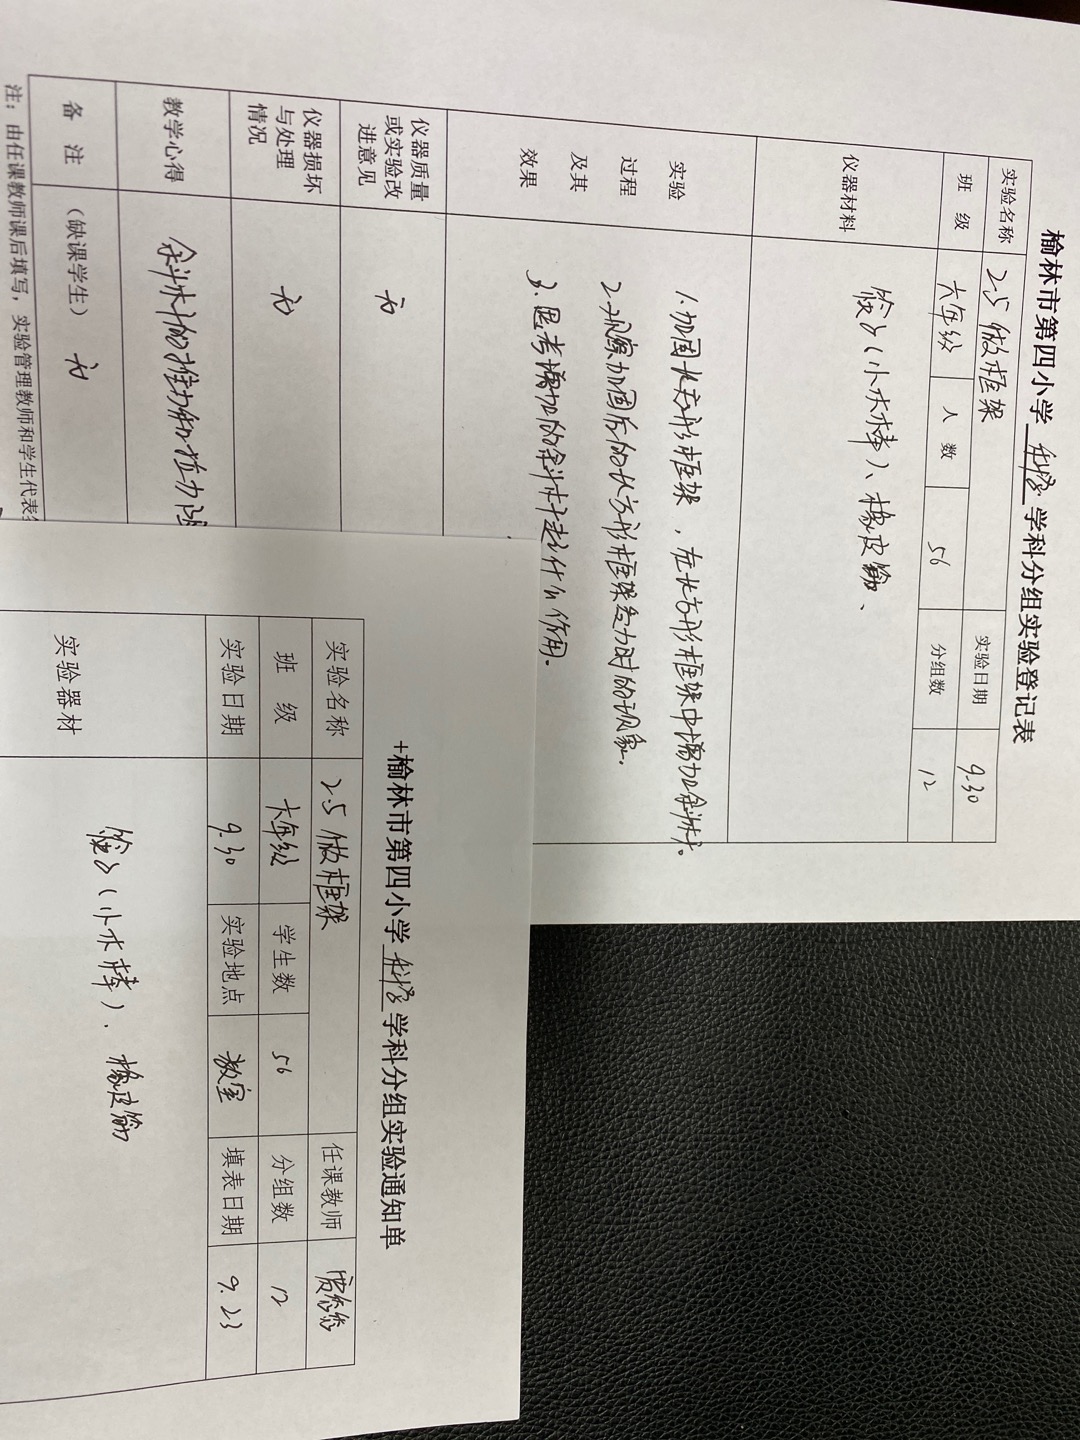 榆林市第四小学 科学 学科分组实验登记表
实验名称 2.5 做框架 实验日期 9.30
班 级 六年级 人 数 56 分组数 12
仪器材料 筷子(小木棒)、橡皮筋、
实验过程及其效果
1.加固长方形框架,在长方形框架中增加斜杆。
2.观察加固后的长方形框架受力时的现象.
3.思考增加的斜杆起什么作用.
仪器质量或实验改进意见 无
仪器损坏与处理情况 无
教学心得 斜杆的推力和拉力
备 注 (缺课学生) 无
注:由任课教师课后填写,实验管理教师和学生代表
+榆林市第四小学 科学 学科分组实验通知单
实验名称 2.5 做框架 任课教师
班 级 六年级 学生数 56 分组数 12
实验日期 9.30 实验地点 教室 填表日期 9.23
实验器材 筷子(小木棒)、橡皮筋